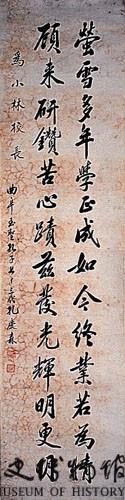 螢雪多年學正成如今終業若為精
顧来研鑽苦心蹟茲發光輝明更
為小林校長
曲阜至聖孔子七十三代孔慶森
MUSEUM OF HISTORY